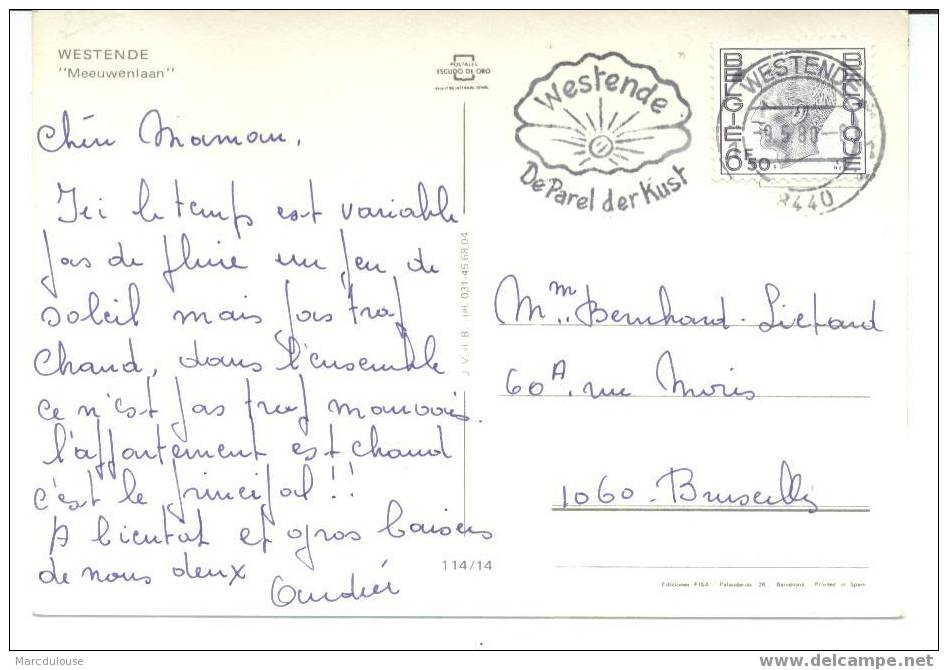 WESTENDE
"Meeuwenlaan"
POSTALES
ESCUDO DE ORO
Westende
De Parel der Kust
BELGIE BELGIQUE
6F50
WESTENDE
8440
Chère Maman,
Ici le temps est variable
pas de pluie un peu de
soleil mais pas trop
chaud, dans l'ensemble
ce n'est pas trop mauvais.
l'appartement est chaud
c'est le principal !!
A bientôt et gros baisers
de nous deux
Andrée
Mme Bernhard-Liefard
60A, rue Moris
1060-Bruxelles
tel. 031-45.68.04
114/14
Ediciones FISA Palaudarias 26 Barcelona Printed in Spain
Marcdulouse
www.delcampe.net